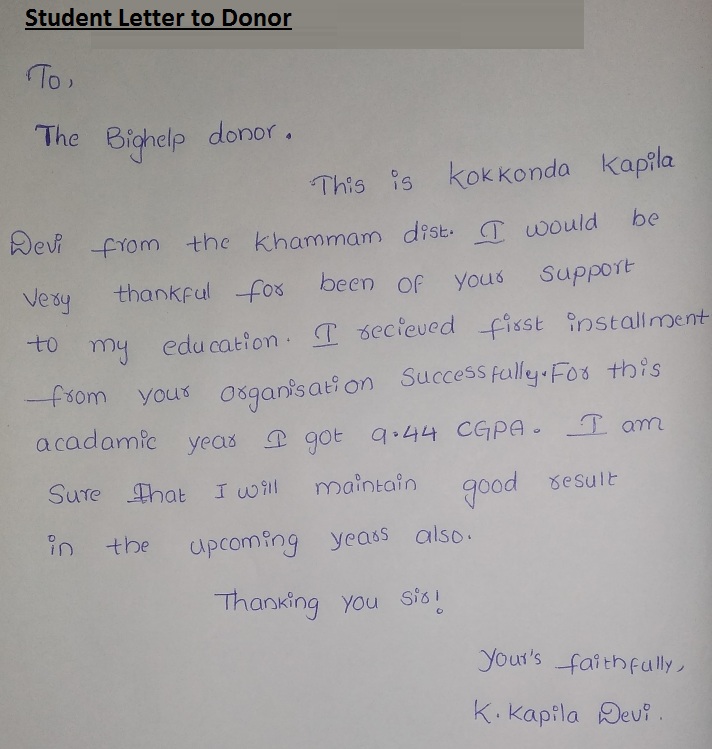 Student Letter to Donor
To,
The Bighelp donor.
This is kokkonda kapila
Devi from the khammam dist. I would be
very thankful for been of your support
to my education. I recieved first installment
from your organisation Successfully. For this
acadamic year I got 9.44 CGPA. I am
Sure that I will maintain good result
in the upcoming years also.
Thanking you sir!
Your's faithfully,
K. Kapila Devi.